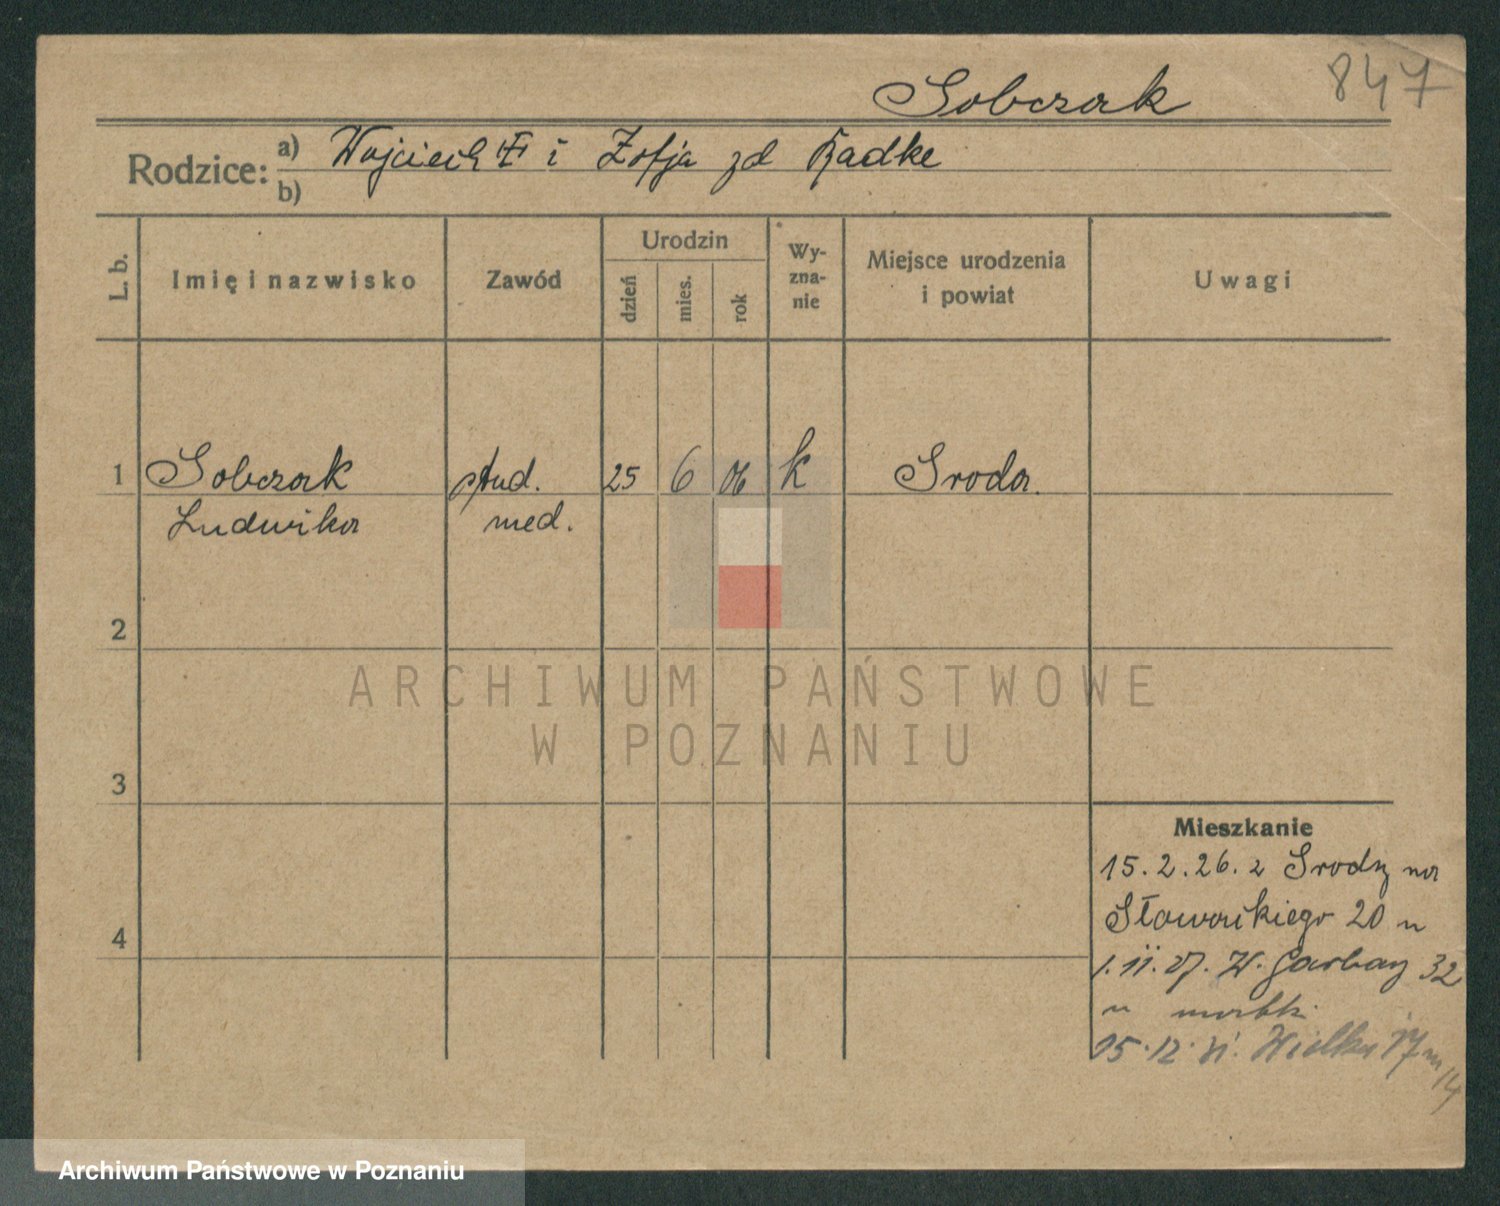 847
Sobczak
Rodzice: a) Wojciech i Zofja zd Radke
b)
L. b. Imię i nazwisko Zawód Urodzin dzień mies. rok Wy-zna-nie Miejsce urodzenia i powiat Uwagi
1 Sobczak stud. 25 6 06 k Sroda.
Ludwika med.
2
ARCHIWUM PAŃSTWOWE
W POZNANIU
3
Mieszkanie
15.2.26. z Srody na
Słowackiego 20 u
4
1.11.27. W. Garbary 32
u matki
15.12.31. Wielka 17 m 14
Archiwum Państwowe w Poznaniu